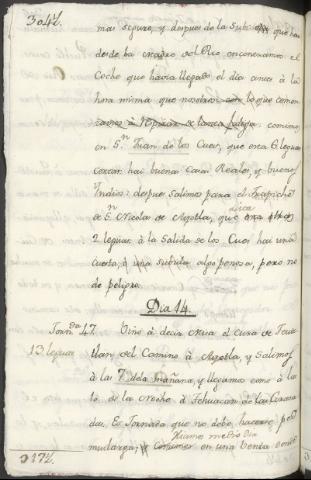 304½.
mas seguro, y despues de la sub... que hai
desde la madre del Rio encontramos el
Coche que havia llegado el dia antes à la
hora misma que nosotros con lo que comen
zamos à
comimos
en S.n Juan de los Cues, que esta 6 leguas
cortas: hai buenas Casas Reales, y buenos
Indios: despues salimos para el Trapiche
de S.n Nicolas de Ayotla, que dista
2 leguas: à la Salida de los Cues hai una
cuesta, à una subida algo penosa, pero no
de peligro.
Dia 14.
Jorn.da 47. Vino à decir Misa el Cura de Teuti
13 leguas tlan del Camino à Ayotla, y Salimos
à las 7 de la mañana, y llegamos como à las
de la Noche à Tehuacan de las Grana
das. Es Jornada que no debe hacerse por
mui larga; hizimos medio dia
en una Venta donde
317½.